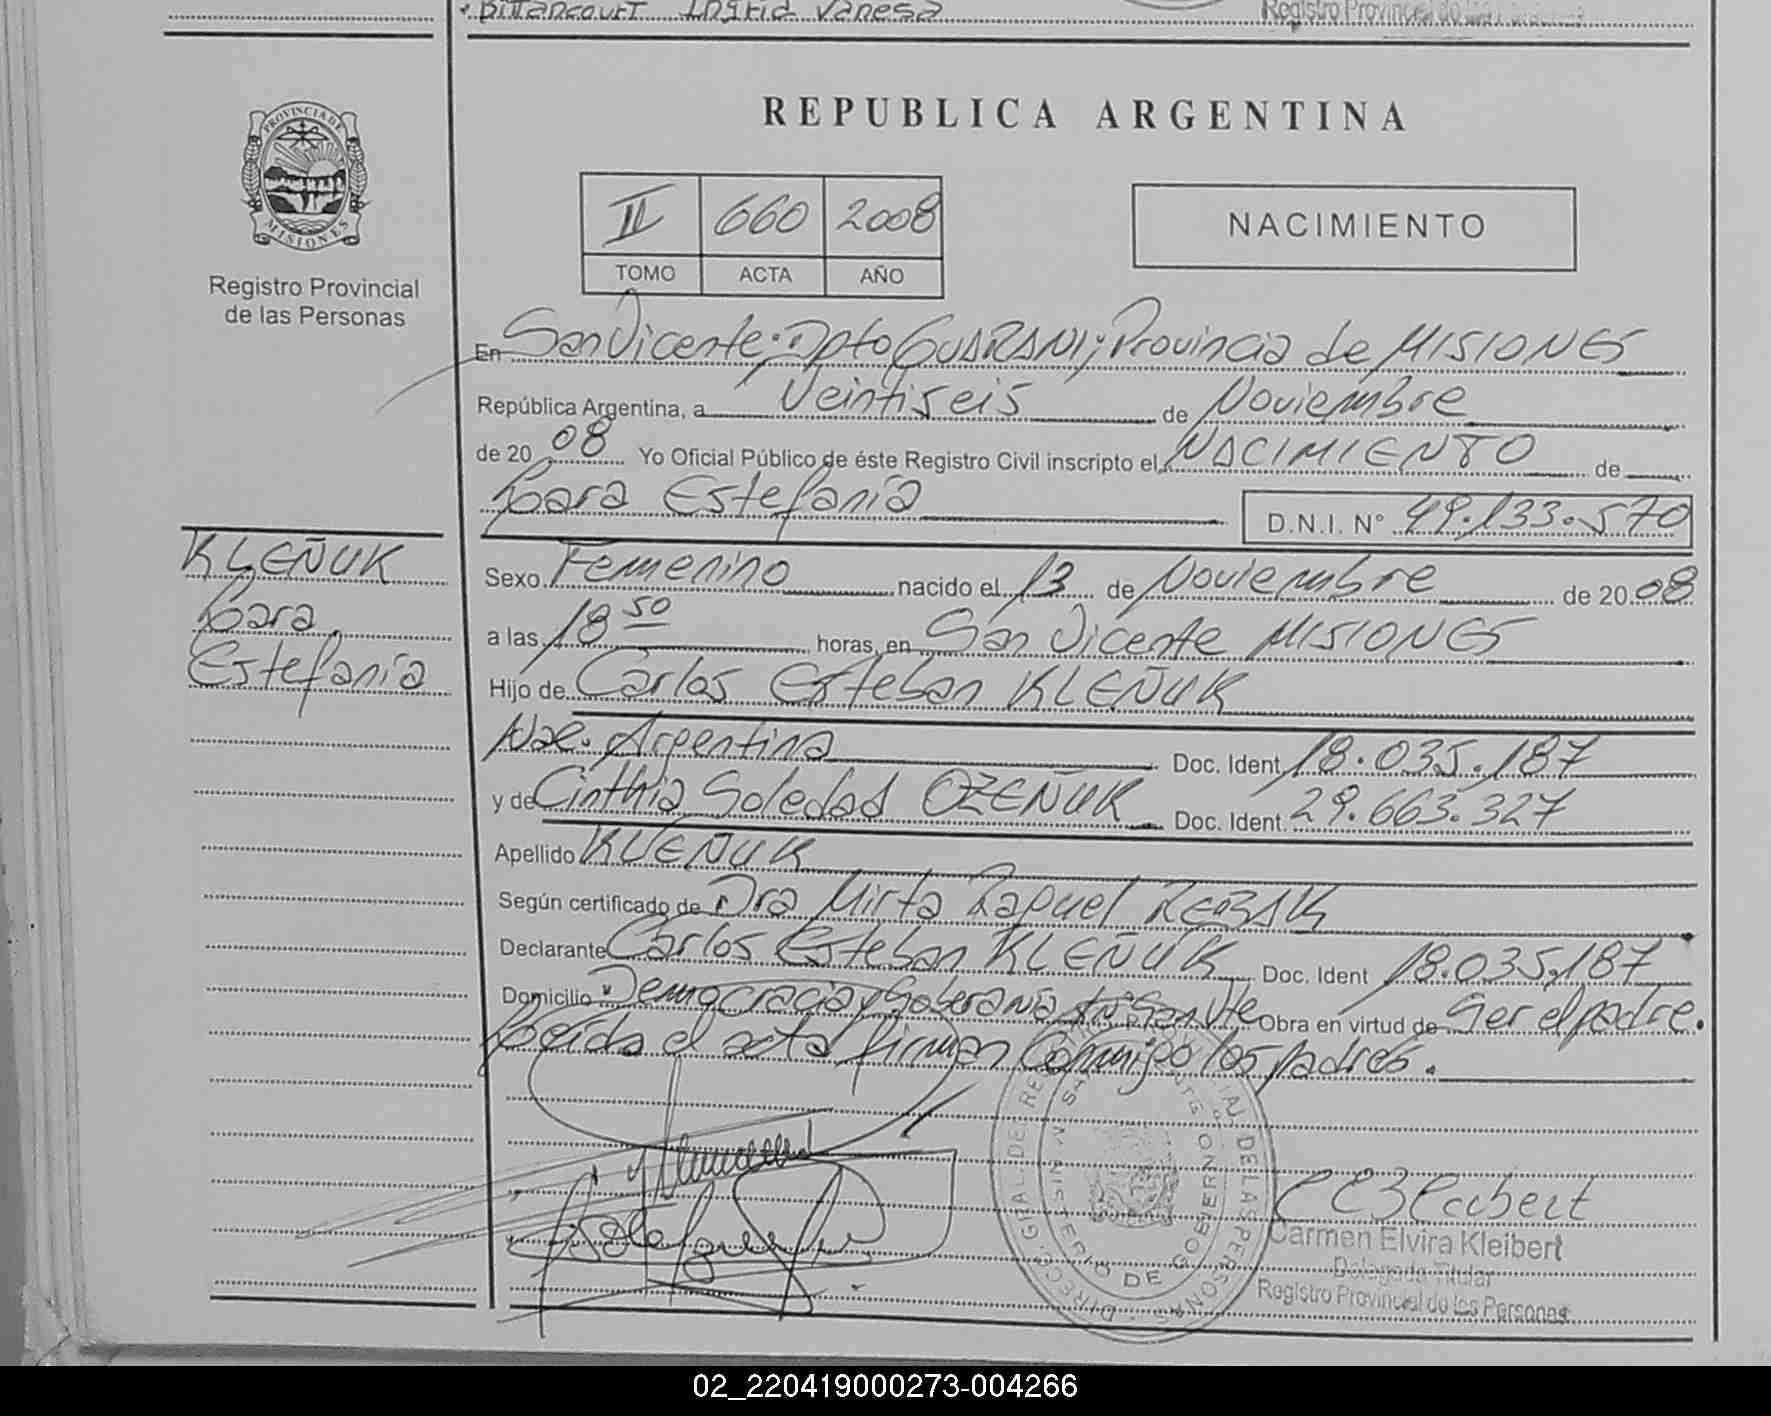 Bittancourt Ingrid Vanesa
Registro Provincial de las
PROVINCIA DE
MISIONES
Registro Provincial
de las Personas
REPUBLICA ARGENTINA
II 660 2008
TOMO ACTA AÑO
NACIMIENTO
En San Vicente; Dpto GUARANI; Provincia de MISIONES
República Argentina, a Veintiseis de Noviembre
de 20 08 Yo Oficial Público de éste Registro Civil inscripto el NACIMIENTO de
Sara Estefanía D.N.I. N° 49.133.570
KLEÑUK
Sara
Estefanía
Sexo Femenino nacido el 13 de Noviembre de 20 08
a las 18 50 horas, en San Vicente MISIONES
Hijo de Carlos Esteban KLEÑUK
Nac. Argentina Doc. Ident 18.035.187
y de Cinthia Soledad OZEÑUK Doc. Ident. 29.663.327
Apellido KLEÑUK
Según certificado de Dra Mirta Raquel
Declarante Carlos Esteban KLEÑUK Doc. Ident 18.035.187
Domicilio Democracia y Soberanía San Vte Obra en virtud de Ser el padre.
el acta firman Conmigo los padres.
DIRECC. GRAL. DE REG. PROVINCIAL DE LAS PERSONAS
SAN VICENTE
MINISTERIO DE GOBIERNO
Carmen Elvira Kleibert
Delegada Titular
Registro Provincial de las Personas
02_220419000273-004266